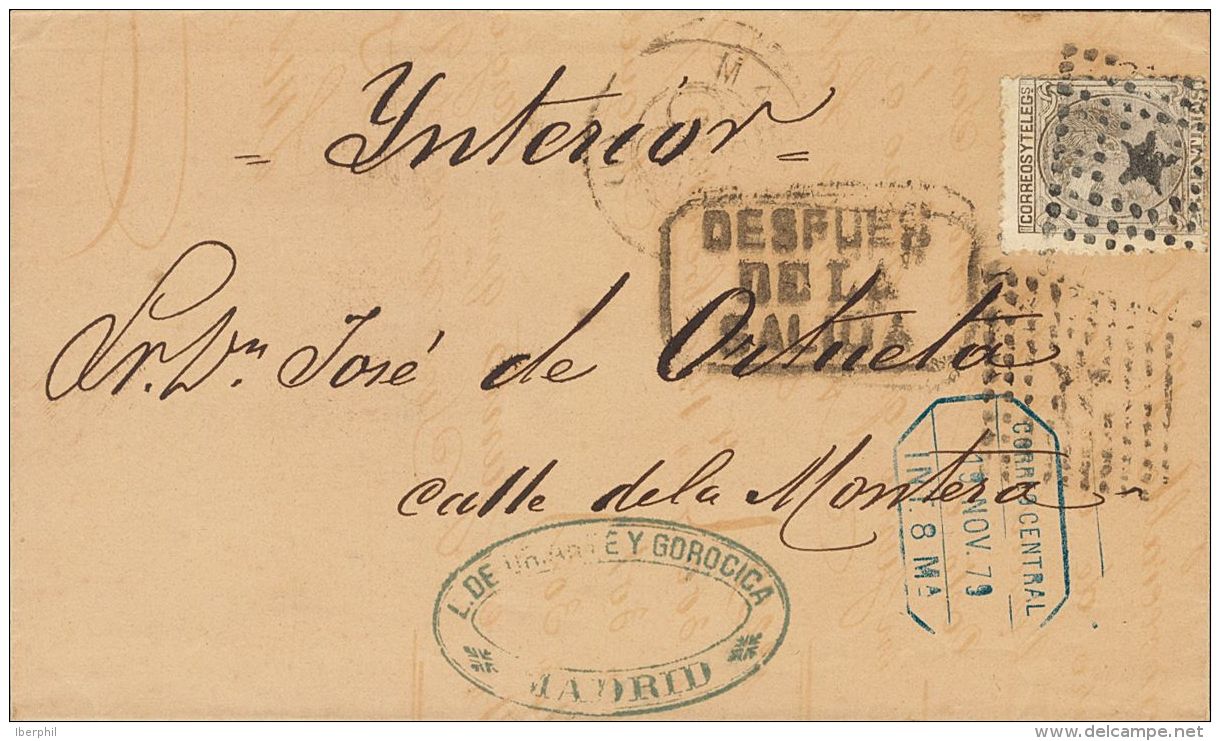 = Ynterior =
DESPUES
DE LA
SALIDA
CORREOS Y TELEGS
Sr. Dn. José de Ortueta
calle de la Montera
CORREO CENTRAL
NOV. 79
INT. 8 Mª
L. DE Y GOROCICA
MADRID
Iberphil
delcampe.net